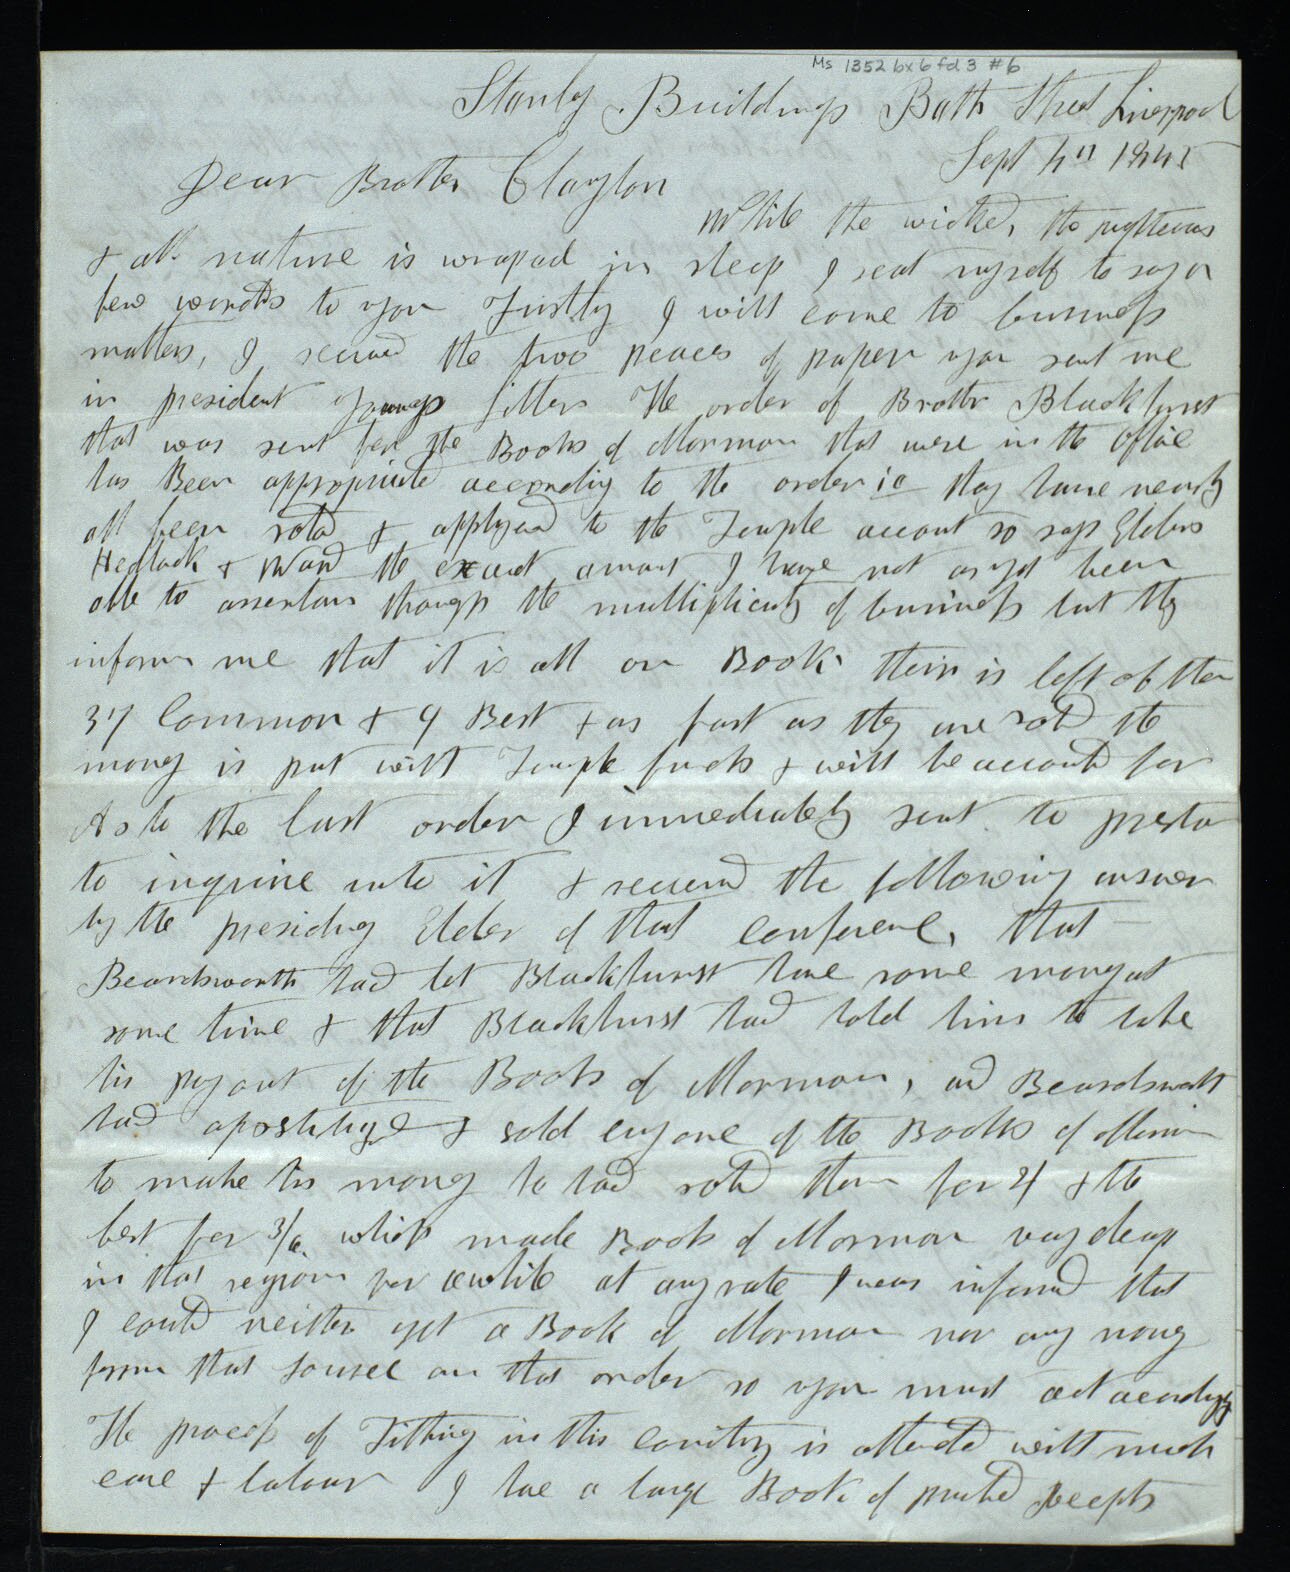 Ms 1352 bx 6 fd 3 #6
Stanley Buildings Bath Street Liverpool
Sept 4th 1845
Dear Brother Clayton
While the wicked, the righteous
& all nature is wraped in sleep I seat myself to say a
few words to you Firstly I will come to business
matters, I received the two peaces of paper you sent me
in president Youngs letter The order of Brother Blackhurst
that was sent for the Books of Mormon that were in the office
has Been appropriated according to the order ie they have nearly
all been sold & applyed to the Temple account so says Elders
Hedlock & Ward the exact amount I have not as yet been
able to assertain through the multiplicity of business but they
inform me that it is all on Book their is left of them
37 Common & 9 Best & as fast as they are sold the
money is put with Temple funds & will be accounted for
As to the last order I immediately sent to preston
to inquire into it & received the following answer
by the presiding Elder of that conference, that
Beardsworth had let Blackhurst have some money at
some time & that Blackhurst had told him to take
his pay out of the Books of Mormon, and Beardsworth
had apostitized & sold evry one of the Books of Mormon
to make his money he had sold them for 2/ & the
best for 3/6. which made Books of Mormon very cheap
in that region for awhile at any rate I was informed that
I could neither get a Book of Mormon nor any money
from that source on that order so you must act accordingly
The process of Tithing in this country is attended with much
care & labour I have a large Book of printed Receepts